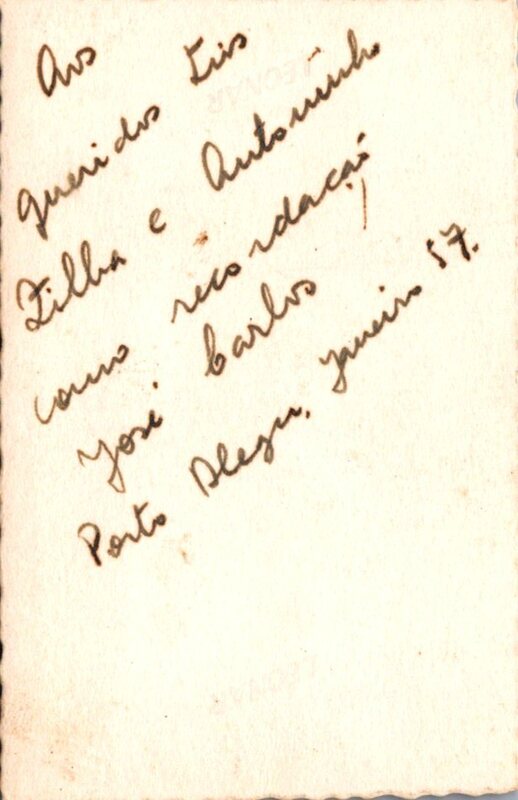 Aos
queridos Tios
Zilba e Antoninho
como recordação
José Carlos
Porto Alegre, Janeiro 57.
LEONAR
LEONAR